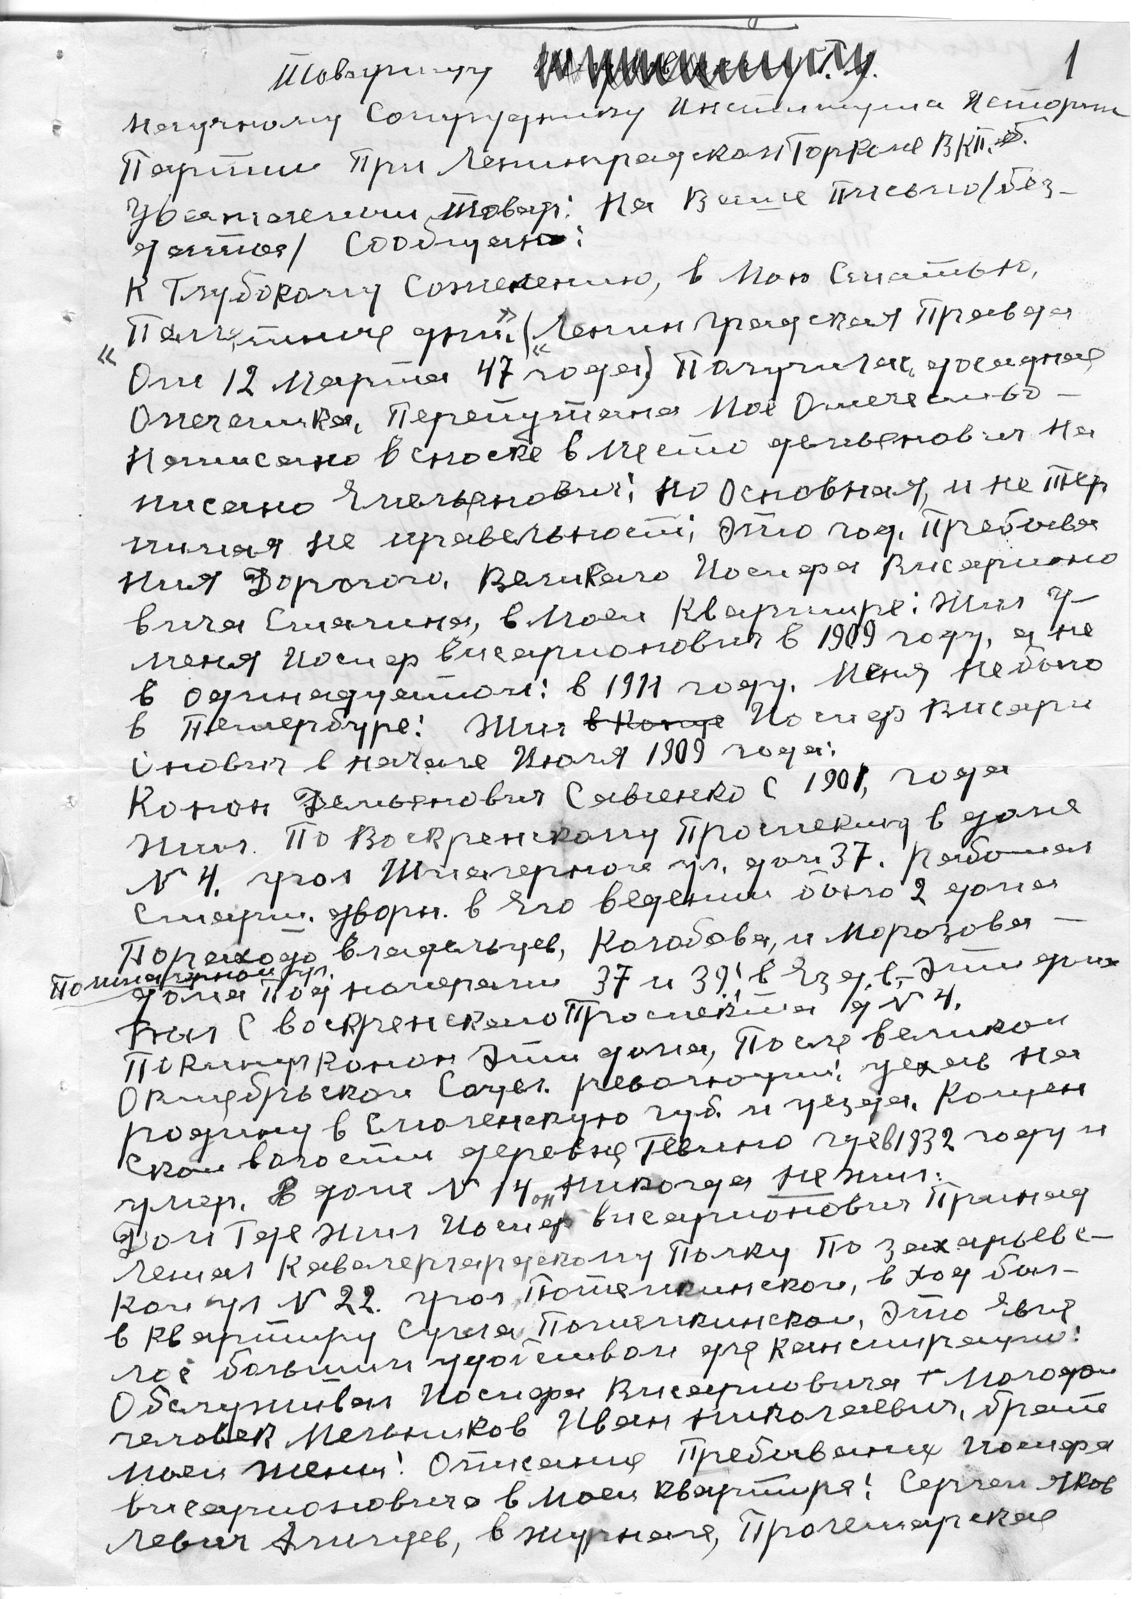 1
Товарищу
Научному Сотруднику Института Истории
Партии При Ленинградском Горкоме ВКП.б.
Уважаемый Товар: На Ваше Письмо/без-
датное/ Сообщаю:
К Глубокому Сожелению, в Мою Статью,
Памятные дни." (Ленинградская Правда
" От 12 Марта 47 "года) Получилась досадная
Опечатка, Перепутана Мое Отечество-
Написано в сноске в место демьянович На
писано Емельянович; но Основная, и не Тер
пимая не правельность; Это год. Пребыва
ния Дорогого. Великого Иосифа Висарионо
вича Сталина, в Моей Квартире: Жил У-
меня Иосиф Висарионович в 1909 году, а не
в одинадцатом: в 1911 году. Меня не было
в Петербурге: Жил в Конце Иосиф Висари
онович в начале Июля 1909 года:
Конон Демьянович Савченко С 1901, года
жил. По Воскренскому Проспекту в доме
N 4. угол Шпалерной ул. дом 37. Работал
Старш. дворн. в Его ведении было 2 дома
Пораходо владельцев, Колобова, и Морозова-
По Шпалерной ул.
дома под номерами 37 и 39! в Езд в-Эти дома
Был С воскренского Проспекта д N 4.
Покинул Конон Эти дома, После великой
Октябрьской Соцел. революции: уехав на
родину в Смоленскую губ. и уезда. Кощен
ской волости деревне Гевино где в 1932 году и
умер. В доме N 14 он никогда не жил:
Дом Где жил Иосиф висарионович Принад
лежал Кавалергардскому Полку По Захарьевс-
кой ул N 22. угол Потемкинской, в ход был-
в Квартиру С угла Потемкинской, Это Явля
лось большим удобством для Канспирации:
Обслуживал Иосифа Висарионовича т Молодой
человек Мельников Иван Николаевич, брат
Моей жены! Описания Пребывания Иосифа
висарионовича в Моей квартире! Сергей Яков
левич Алилуев, в Журнале, Пролетарская